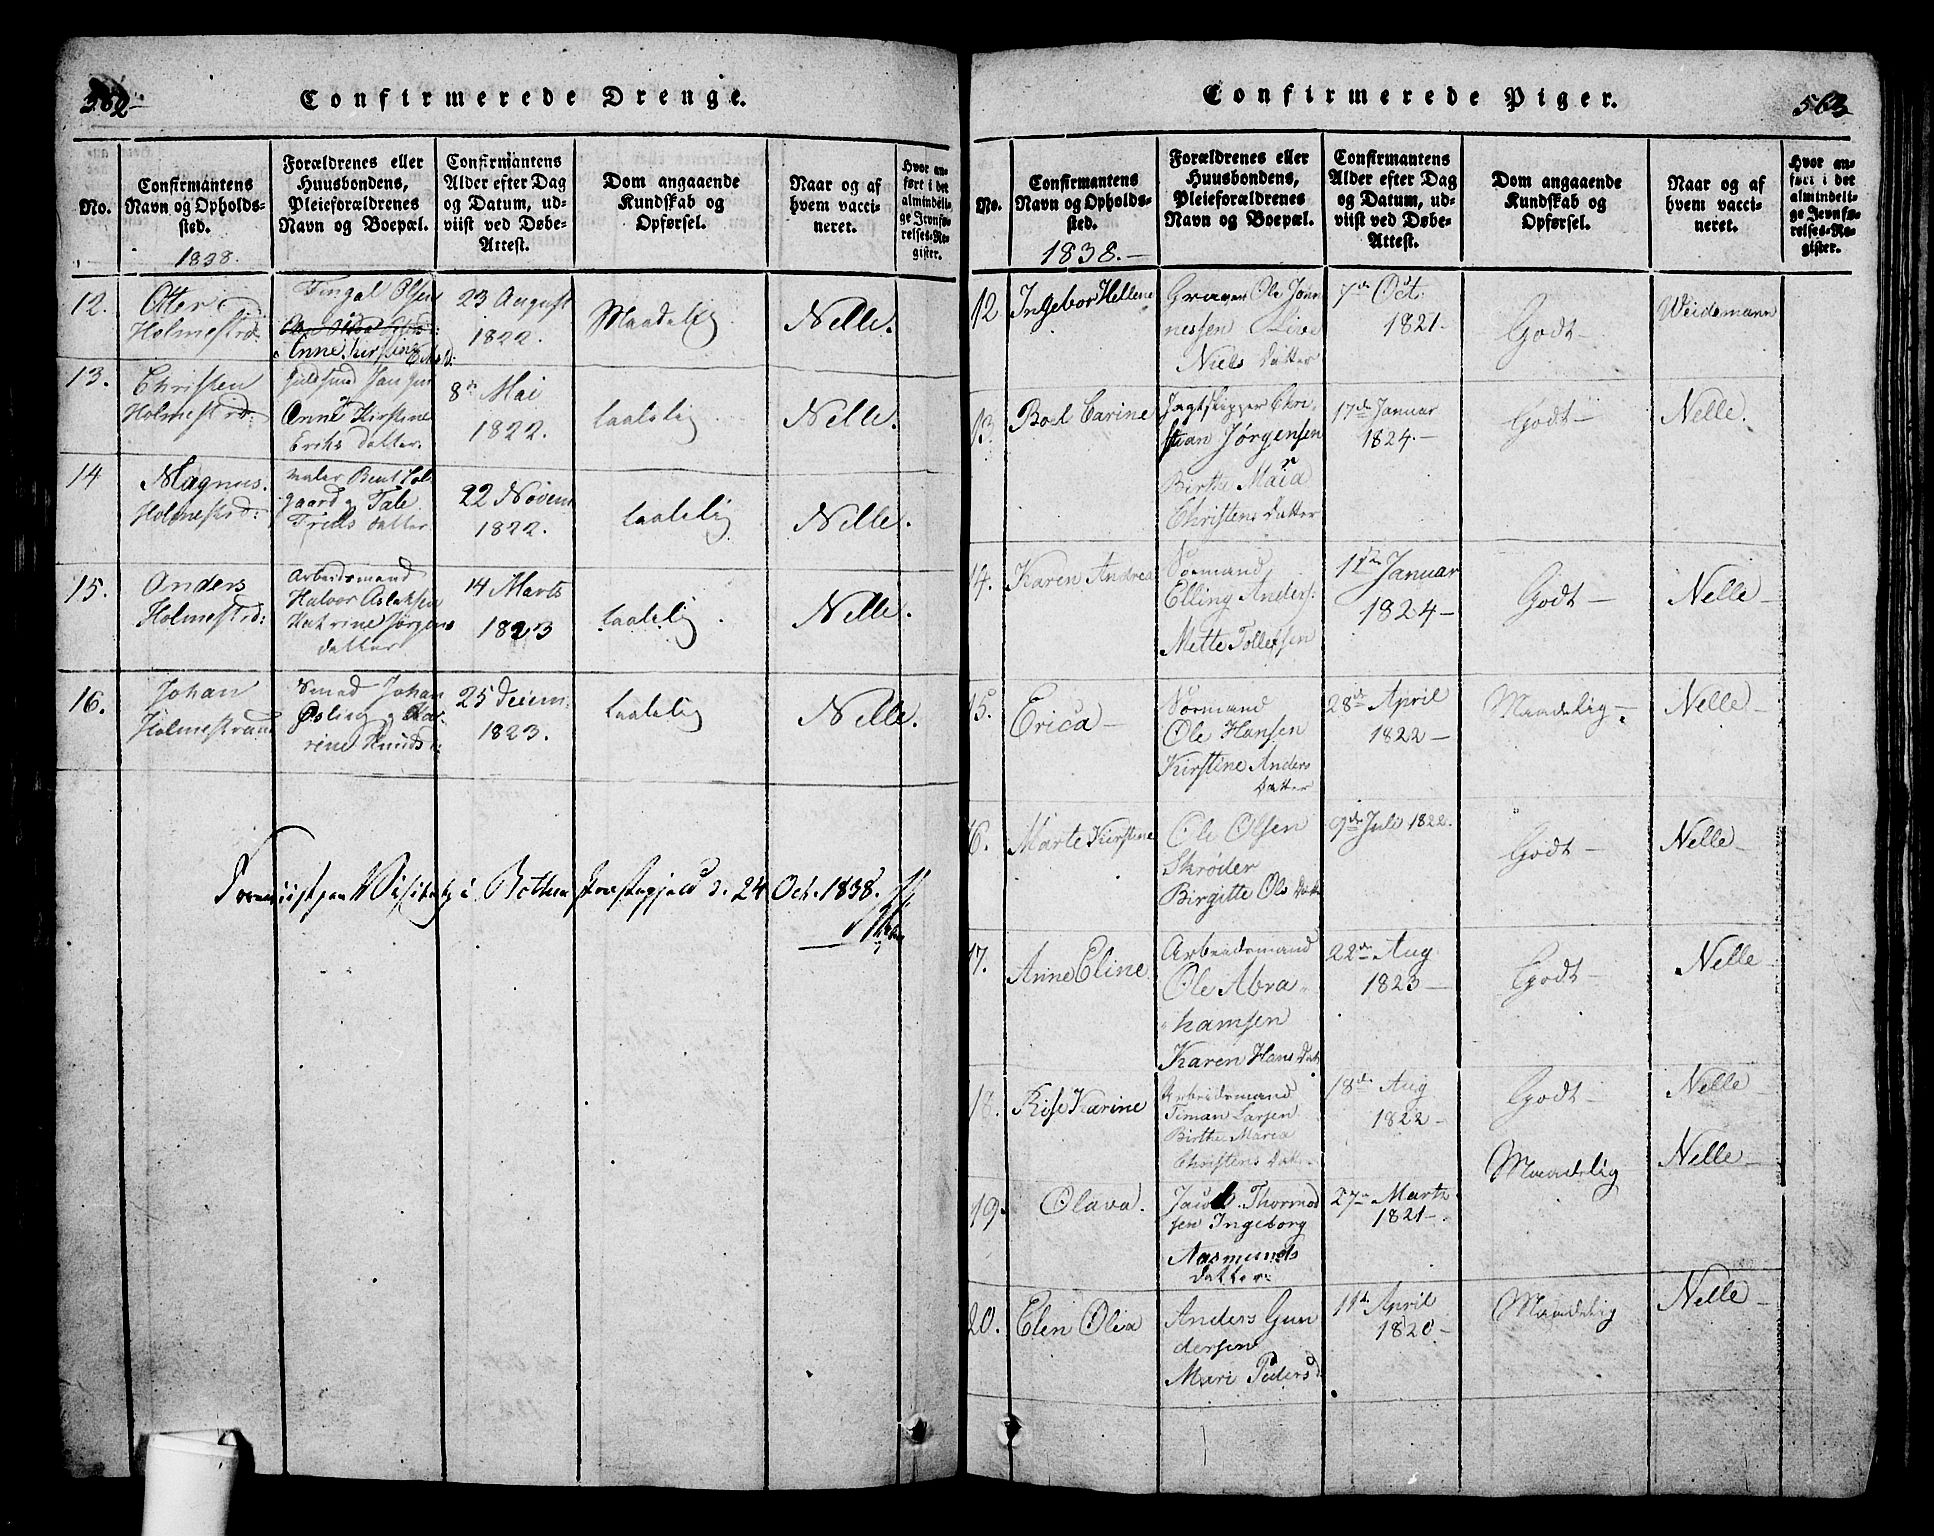 562
Confirmerede Drenge.
No.
Confirmantens
Navn og Opholds-
sted.
1838.
Forældrenes eller
Huusbondens,
Pleieforældrenes
Navn og Boepæl.
Confirmantens
Alder efter Dag
og Datum, ud-
viist ved Døbe-
Attest.
Dom angaaende
Kundskab og
Opførsel.
Naar og af
hvem vacci-
neret.
Hvor an-
ført i det
almindeli-
ge Jevnfø-
relses-Re-
gister.
12.
Otter
Holmestrd:
Fingal Olsen
Anne Kirstine
23 August
1822.
Maadelig
Nelle.
13.
Christen
Holmestrd:
Jansen
Anne Kirstine
Eriks datter.
8de Mai
1822.
taalelig
Nelle.
14
Magnus.
Holmestrd:
maler Bent
gaard og Tale
datter
22 Novem
1822.
taalelig
Nelle.
15.
Anders
Holmestrd:
Arbeidsmand
Halvor Aslaksen
Katrine Jørgens
datter
14 Marts
1823
taalelig
Nelle.
16.
Johan
Holmestrand
Smed Johan
Østlie og Ka-
rine Knuds
25
1823.
taalelig
Nelle.
Visitatz i Bothne Præstegjeld d. 24 Oct. 1838.
Confirmerede Piger.
563
No.
Confirmantens
Navn og Opholds-
sted.
1838.-
Forældrenes eller
Huusbondens,
Pleieforældrenes
Navn og Boepæl.
Confirmantens
Alder efter Dag
og Datum, ud-
viist ved Døbe-
Attest.
Dom angaaende
Kundskab og
Opførsel.
Naar og af
hvem vacci-
neret.
Hvor an-
ført i det
almindeli-
ge Jevnfø-
relses-Re-
gister.
12
Ingebor Hellene
Ole Jon
nessen Live
Niels Datter
7de Oct.
1821.
Godt-
Weidemann
13.
Boel Carine
Jagtskipper Chri-
stian Jørgensen
Birthe Maria
Christens Datter
17de Januar
1824.-
Godt-
Nelle.
14.
Karen Andrea
Sørmand
Elling Anders:
Mette Tollefsen
Januar
1824-
Godt-
Nelle-
15.
Erica-
Sørmand
Ole Hansen
Kirstine Anders
Datter
28de April
1822-
Maadelig-
Nelle-
16.
Marte Kirstine
Ole Olsen
Skrøder
Birgitte Ols Datter
9de Juli 1822.
Godt-
Nelle-
17.
Anne Eline
Arbeidsmand
Ole Abra-
hamsen
Karen Hans Dat
22de Aug
1823-
Godt-
Nelle
18.
Rise Karine
Arbeidsmand
Timan Larsen
Birthe Maria
Christens Dat.
18de Aug
1822-
Godt-
Nelle-
19.
Olava.
Jacob Thormod
sen Ingeborg
Aasmunds
datter:
27de Marts
1821-
Maadelig
Nelle-
20.
Elen Olea
Anders Gun
dersen
Mari Peders d
11te April
1820-
Maadelig
Nelle-